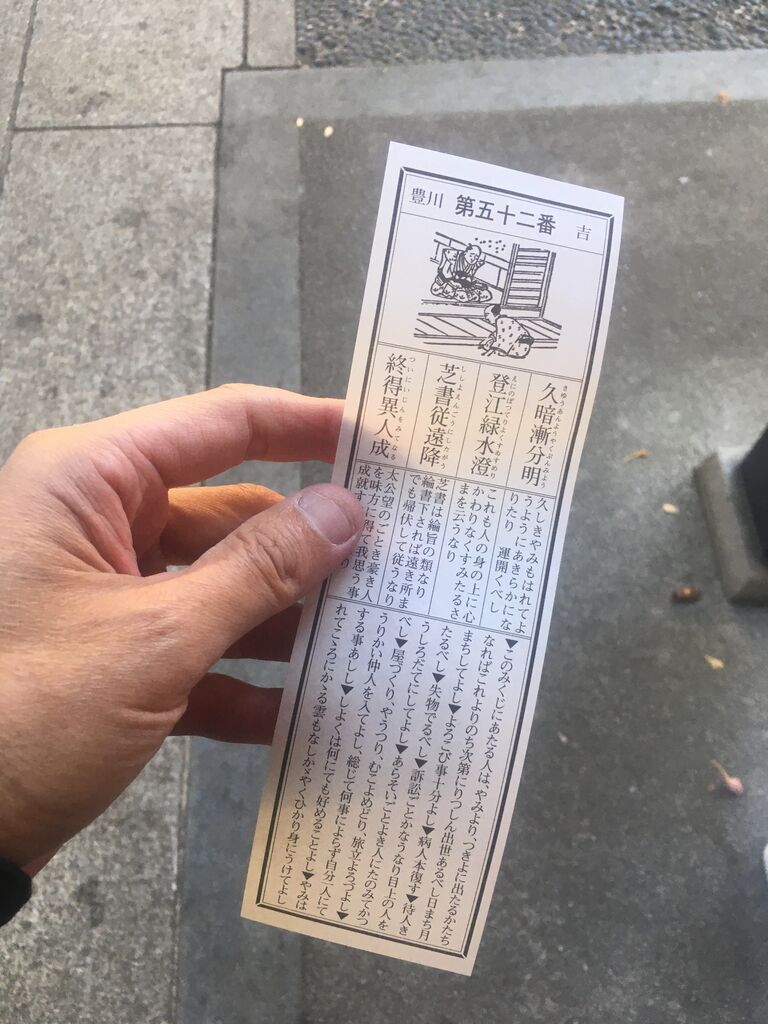 豊川 第五十二番 吉
久暗漸分明
きゆうあんようやくぶんみよう
登江緑水澄
えにのぼつてりよくすゐすめり
芝書従遠降
ししよえんごうにしたがう
終得異人成
ついにいじんをみてなる
久しきやみもはれてよ
うようにあきらかにな
りたり 運開くべし
これも人の身の上に心
かわりなくすみたるさ
まを云うなり
芝書は綸旨の類なり
綸書下されば遠き所ま
でも帰伏して従うなり
太公望のごとき豪き人
を味方に得て我思う事
成就す り
▼このみくじにあたる人は、やみより、つきよに出たるかたち
なればこれよりのち次第にりつしん出世あるべし日まち月
まちしてよし▼よろこび事十分よし▼病人本復す▼待人き
たるべし▼失物でるべし▼訴訟ごとかなうなり目上の人を
うしろだてにしてよし▼あらそいごとよき人にたのみてかつ
べし▼屋づくり、やうつり、むこよめどり、旅立よろづよし▼
うりかい仲人を入てよし、総じて何事によらず自分一人にて
する事あしし▼しよくは何にても好めることよし▼やみは
れてこゝろにかゝる雲もなしかゞやくひかり身にうけてよし